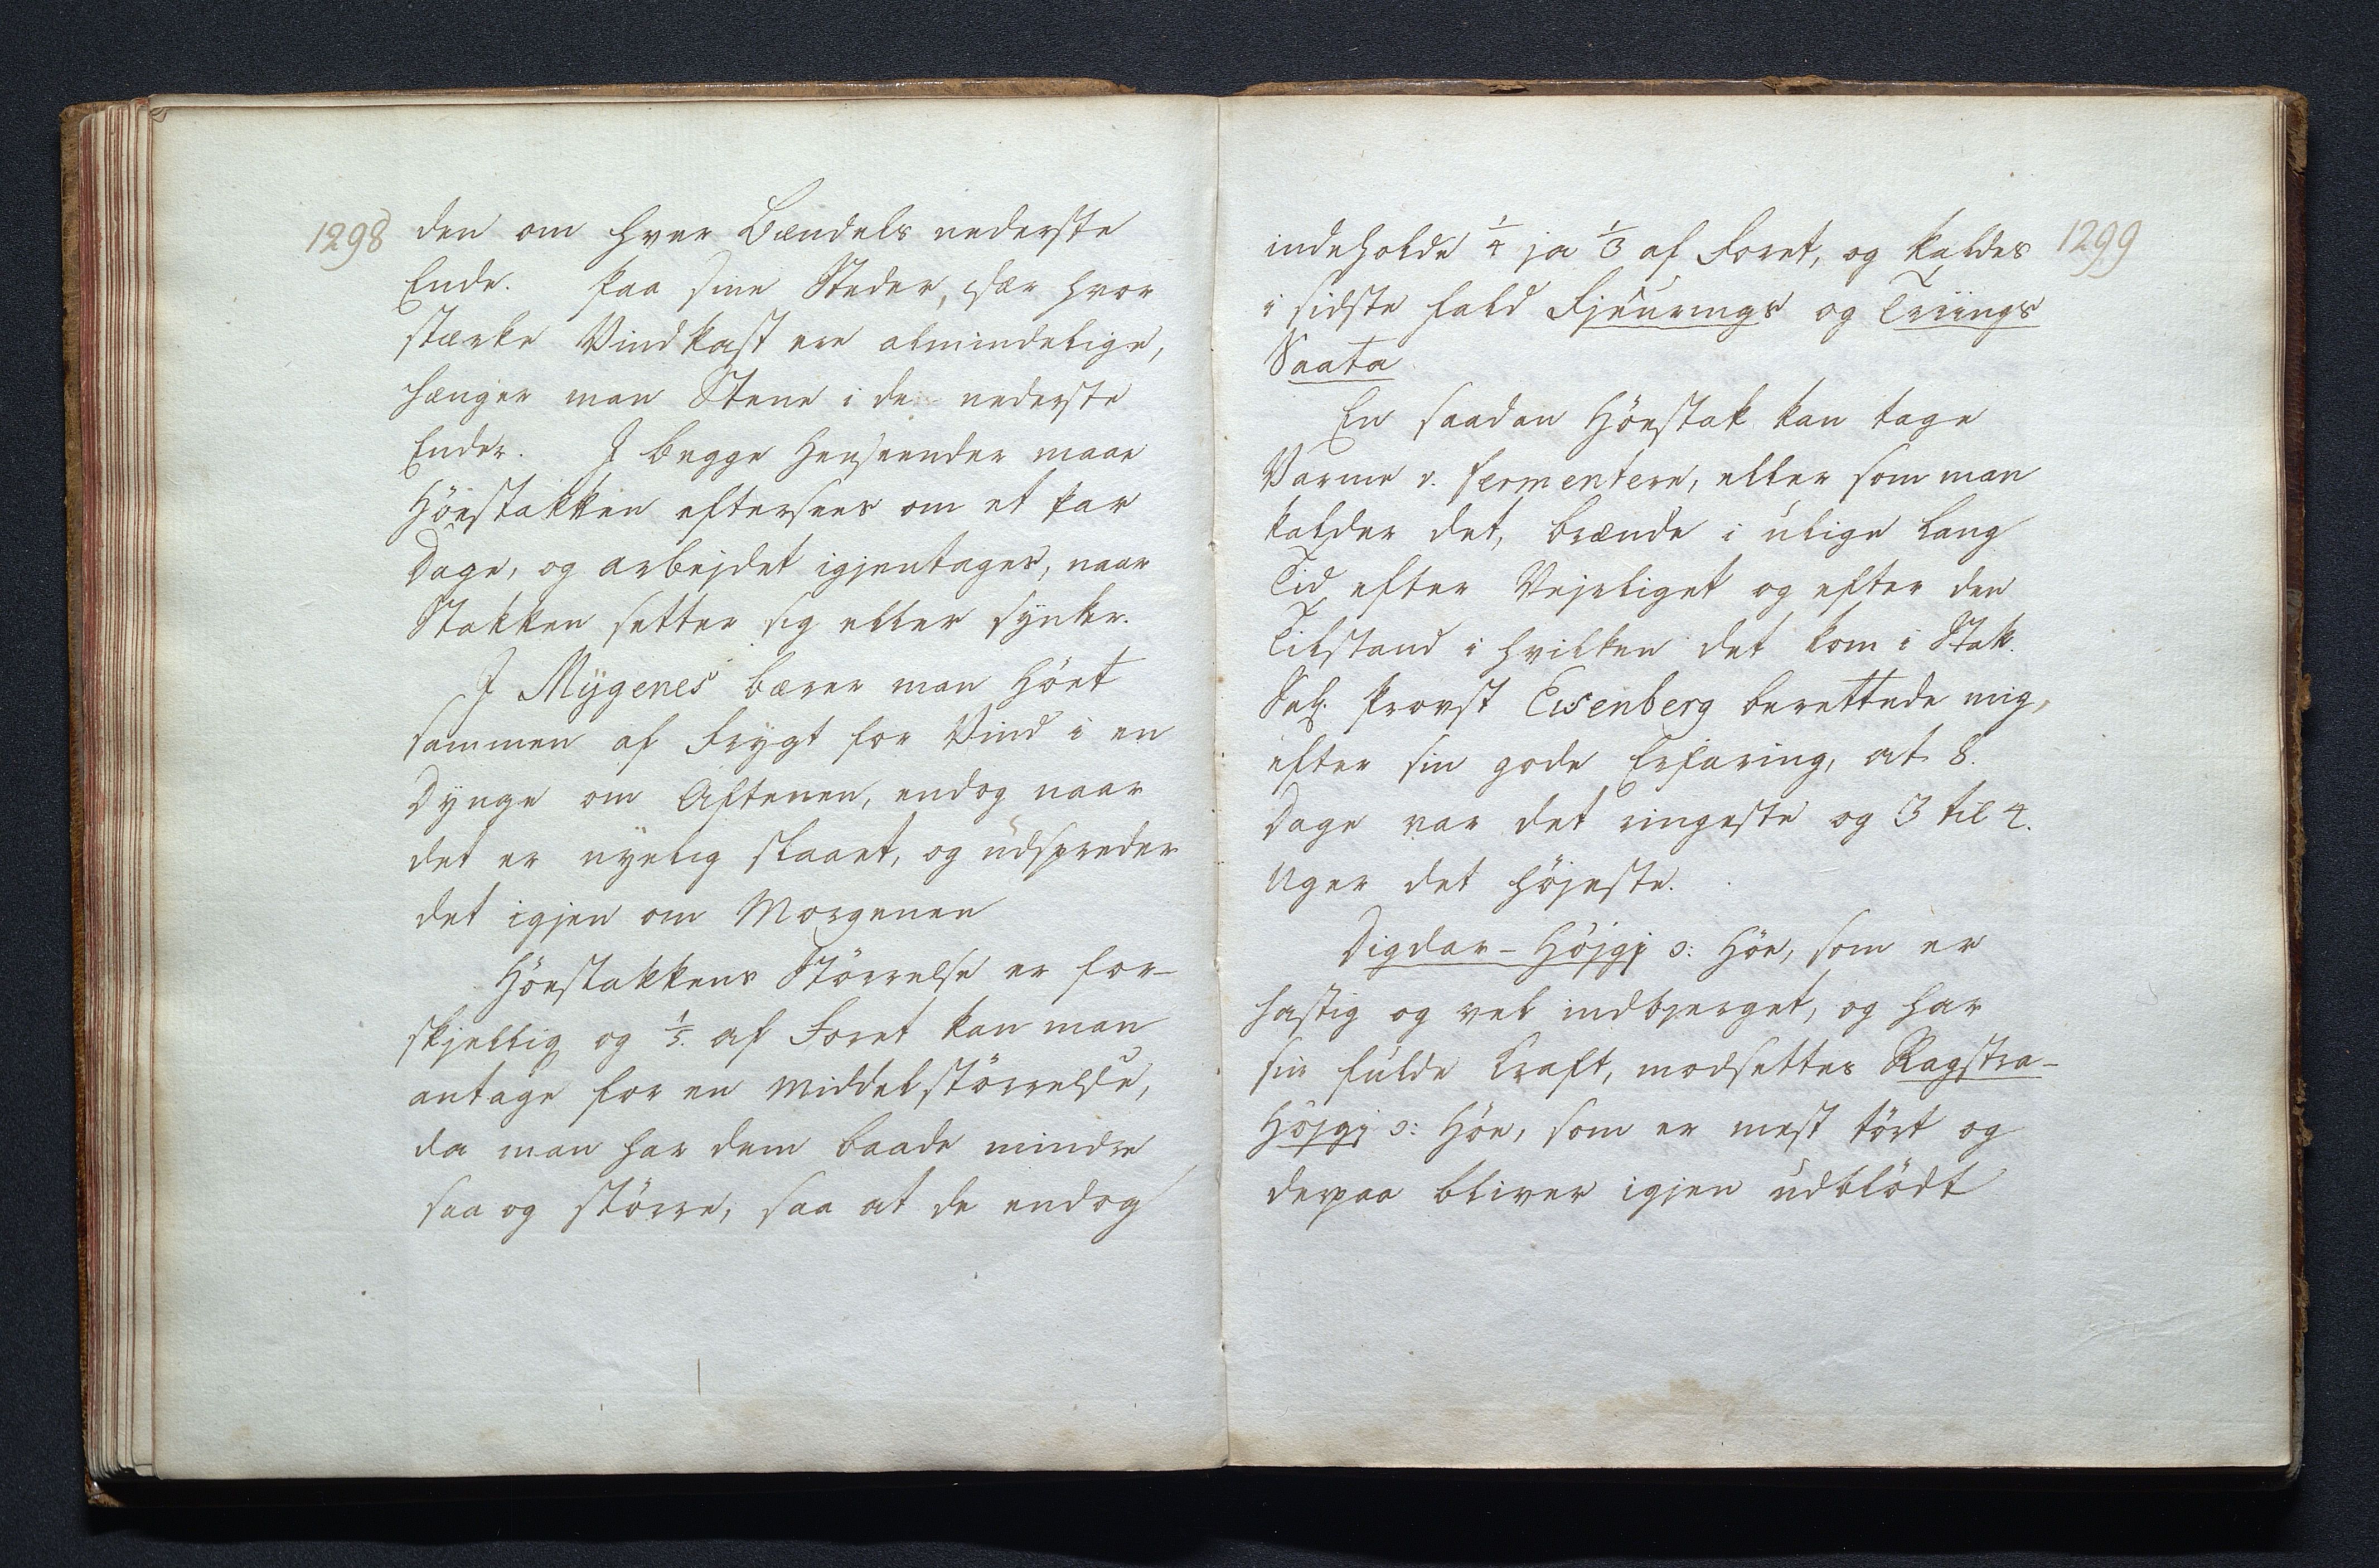 1298
den om hver Bændels nederste
Ende. Paa sine Steder, især hvor
stærke Vindkast ere almindelige,
hænger man Stene i de nederste
Ender. I begge Henseender maae
Höestakken eftersees om et par
Dage, og arbejdet igjentages, naar
Stakken setter sig eller synker.
I Mÿgenes bærer man Höet
sammen af Frygt for Vind i en
Dynge om Aftenen, endog naar
det er nyelig slaaet, og udspreder
det igjen om Morgenen
Höestakkens Störrelse er for-
skjellig og 1/5. af Foret kan man
antage for en Middelstörrelse,
da man har dem baade mindre
saa og större, saa at de endog
1299
indeholde 1/4 ja 1/3 af Foret, og kaldes
i sidste fald Fjeurings og Triings
Saata
En saadan Höestak kan tage
Varme v. fermentere, eller som man
kalder det, brænde i ulige lang
Tid efter Vejrliget og efter den
Tilstand i hvilken det kom i Stak.
Sal. Provst Eisenberg berettede mig,
efter sin gode Erfaring, at 8.
Dage var det ringeste og 3 til 4.
Uger det höjeste.
Digdar-Höjgj ɔ: Höe, som er
hastig og vel indbjerget, og har
sin fulde Kraft, modsettes Ragstra-
Höjgj ɔ: Höe, som er mest tört og
derpaa bliver igjen udblödt